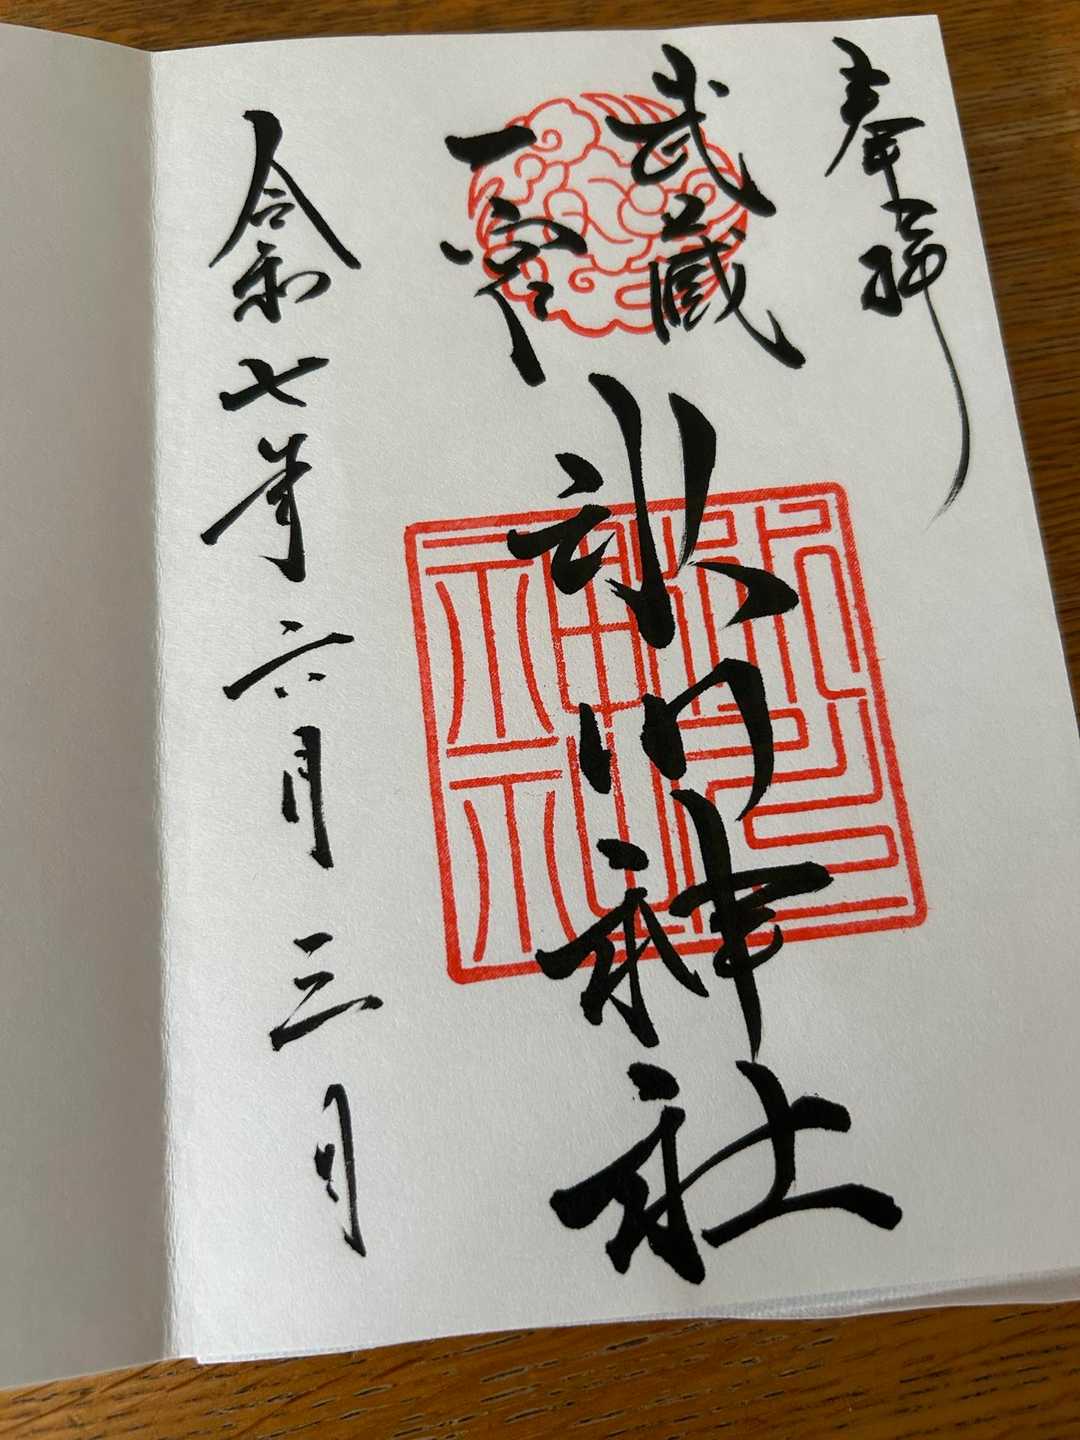 奉拝
武蔵
一宮
氷川神社
令和七年六月三日